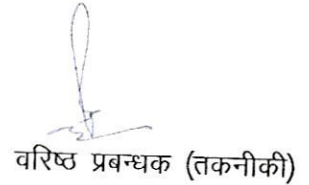 वरिष्ठ प्रबन्धक (तकनीकी)